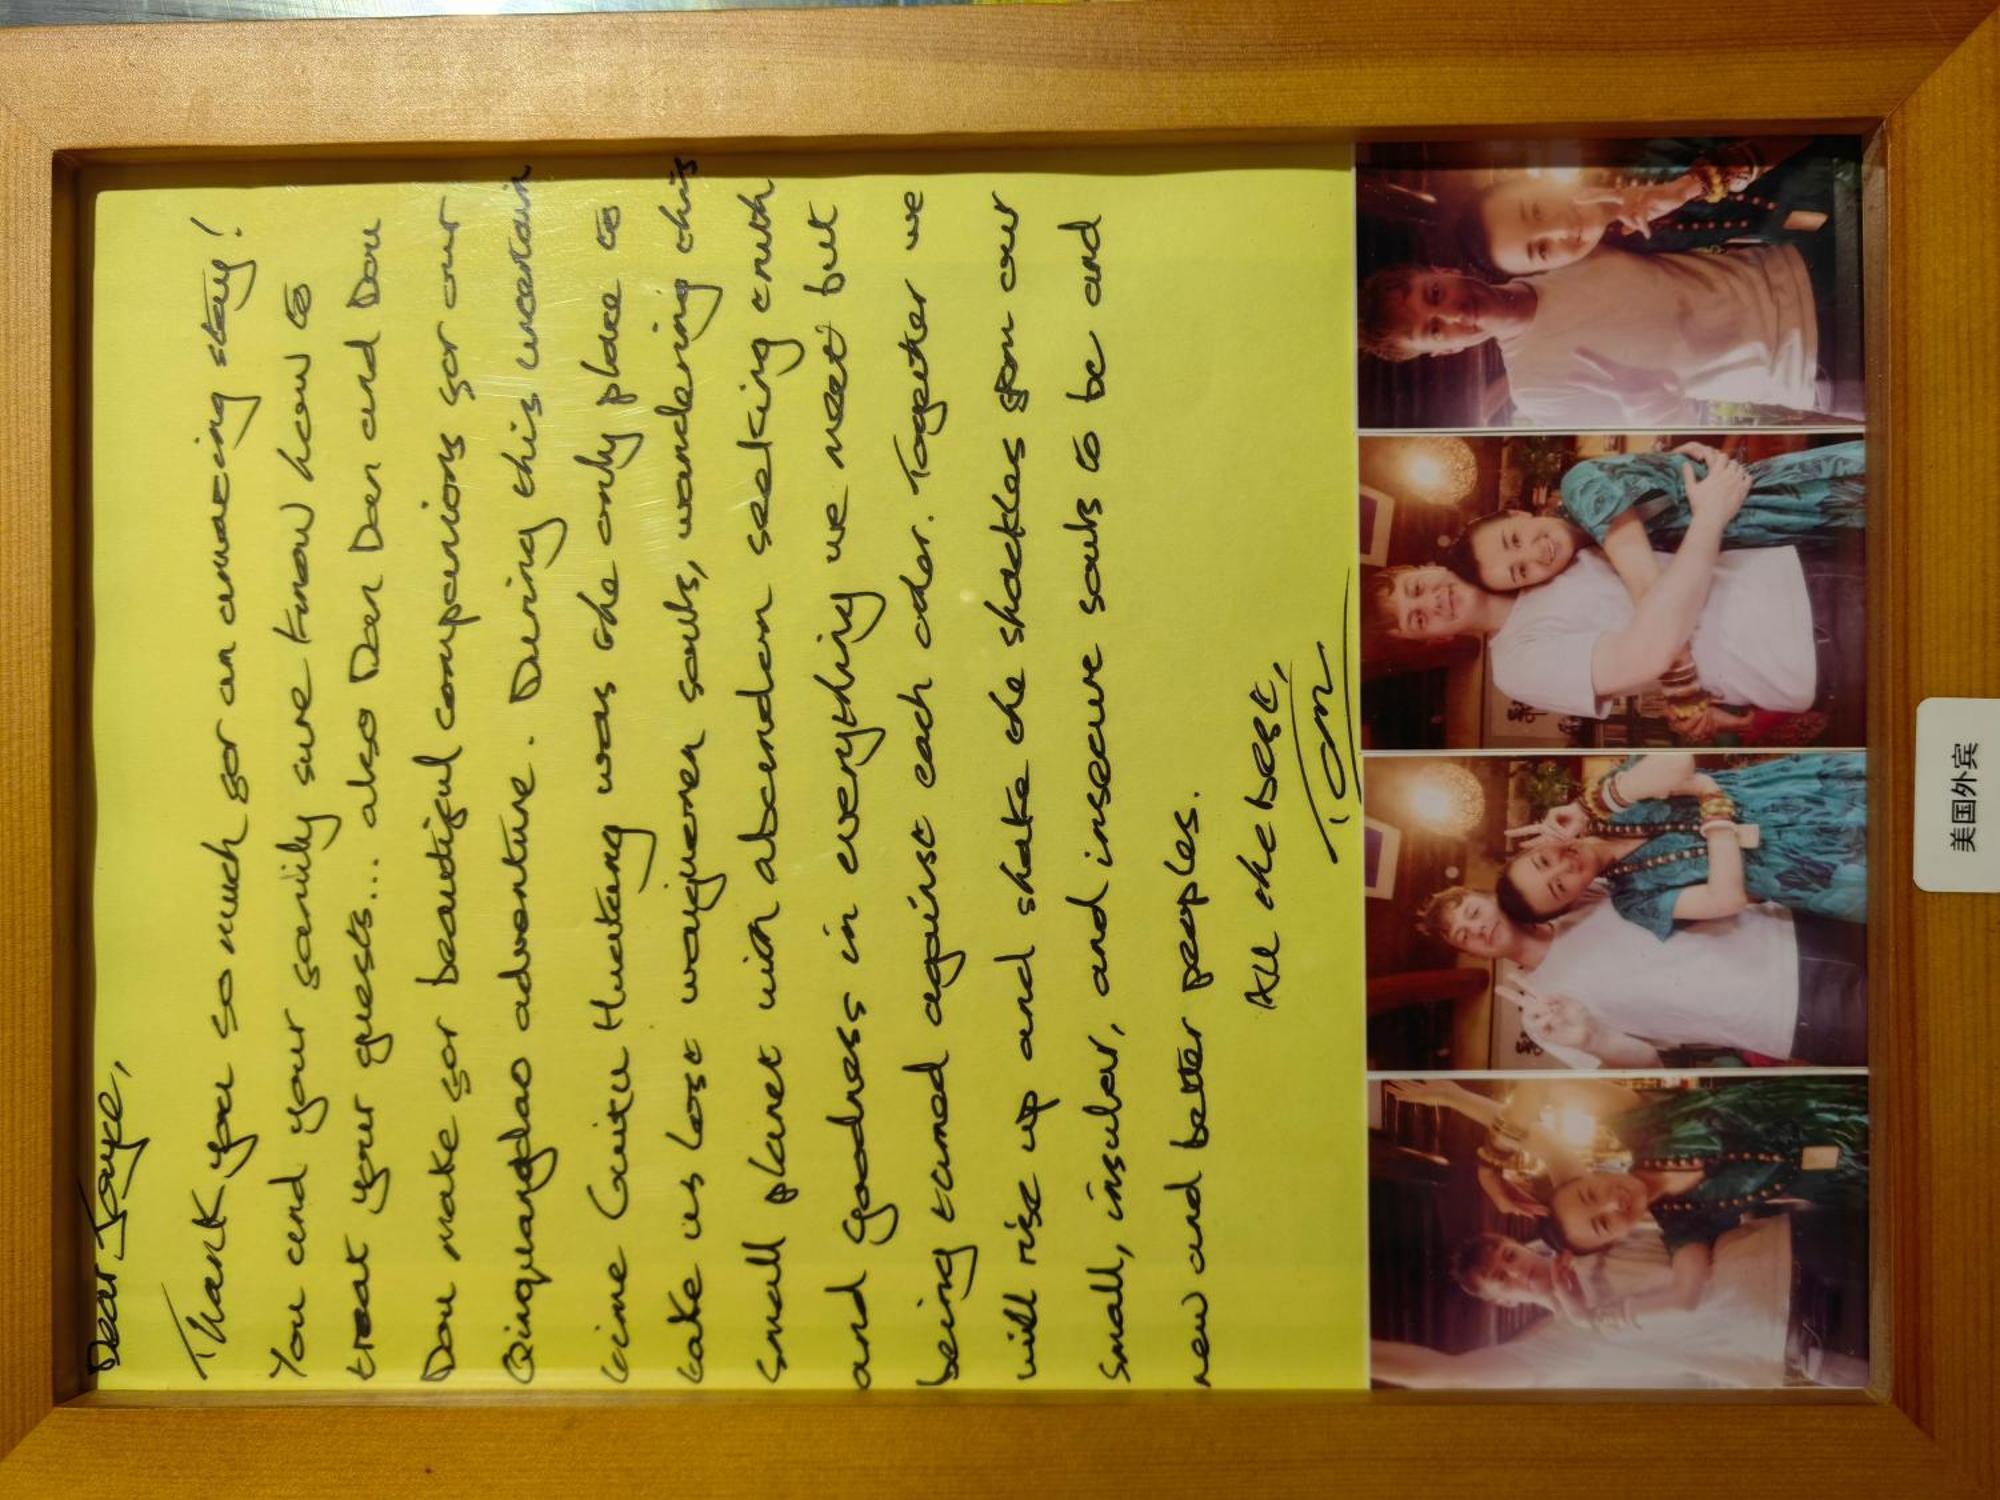 Dear Joyce,
Thank you so much for an amazing stay!
You and your family sure know how to
treat your guests... also Dan Dan and Dou
Dou make for beautiful companions for our
Qinquangdao adventure. During this uncertain
time Guitu Hutong was the only place to
take us lost wayfarer souls, wandering this
small planet with abandon seeking truth
and goodness in everything we meet but
being turned against each other. Together we
will rise up and shake the shackles from our
small, insular, and insecure souls to be and
new and better peoples.
All the best,
Tom
美国外宾